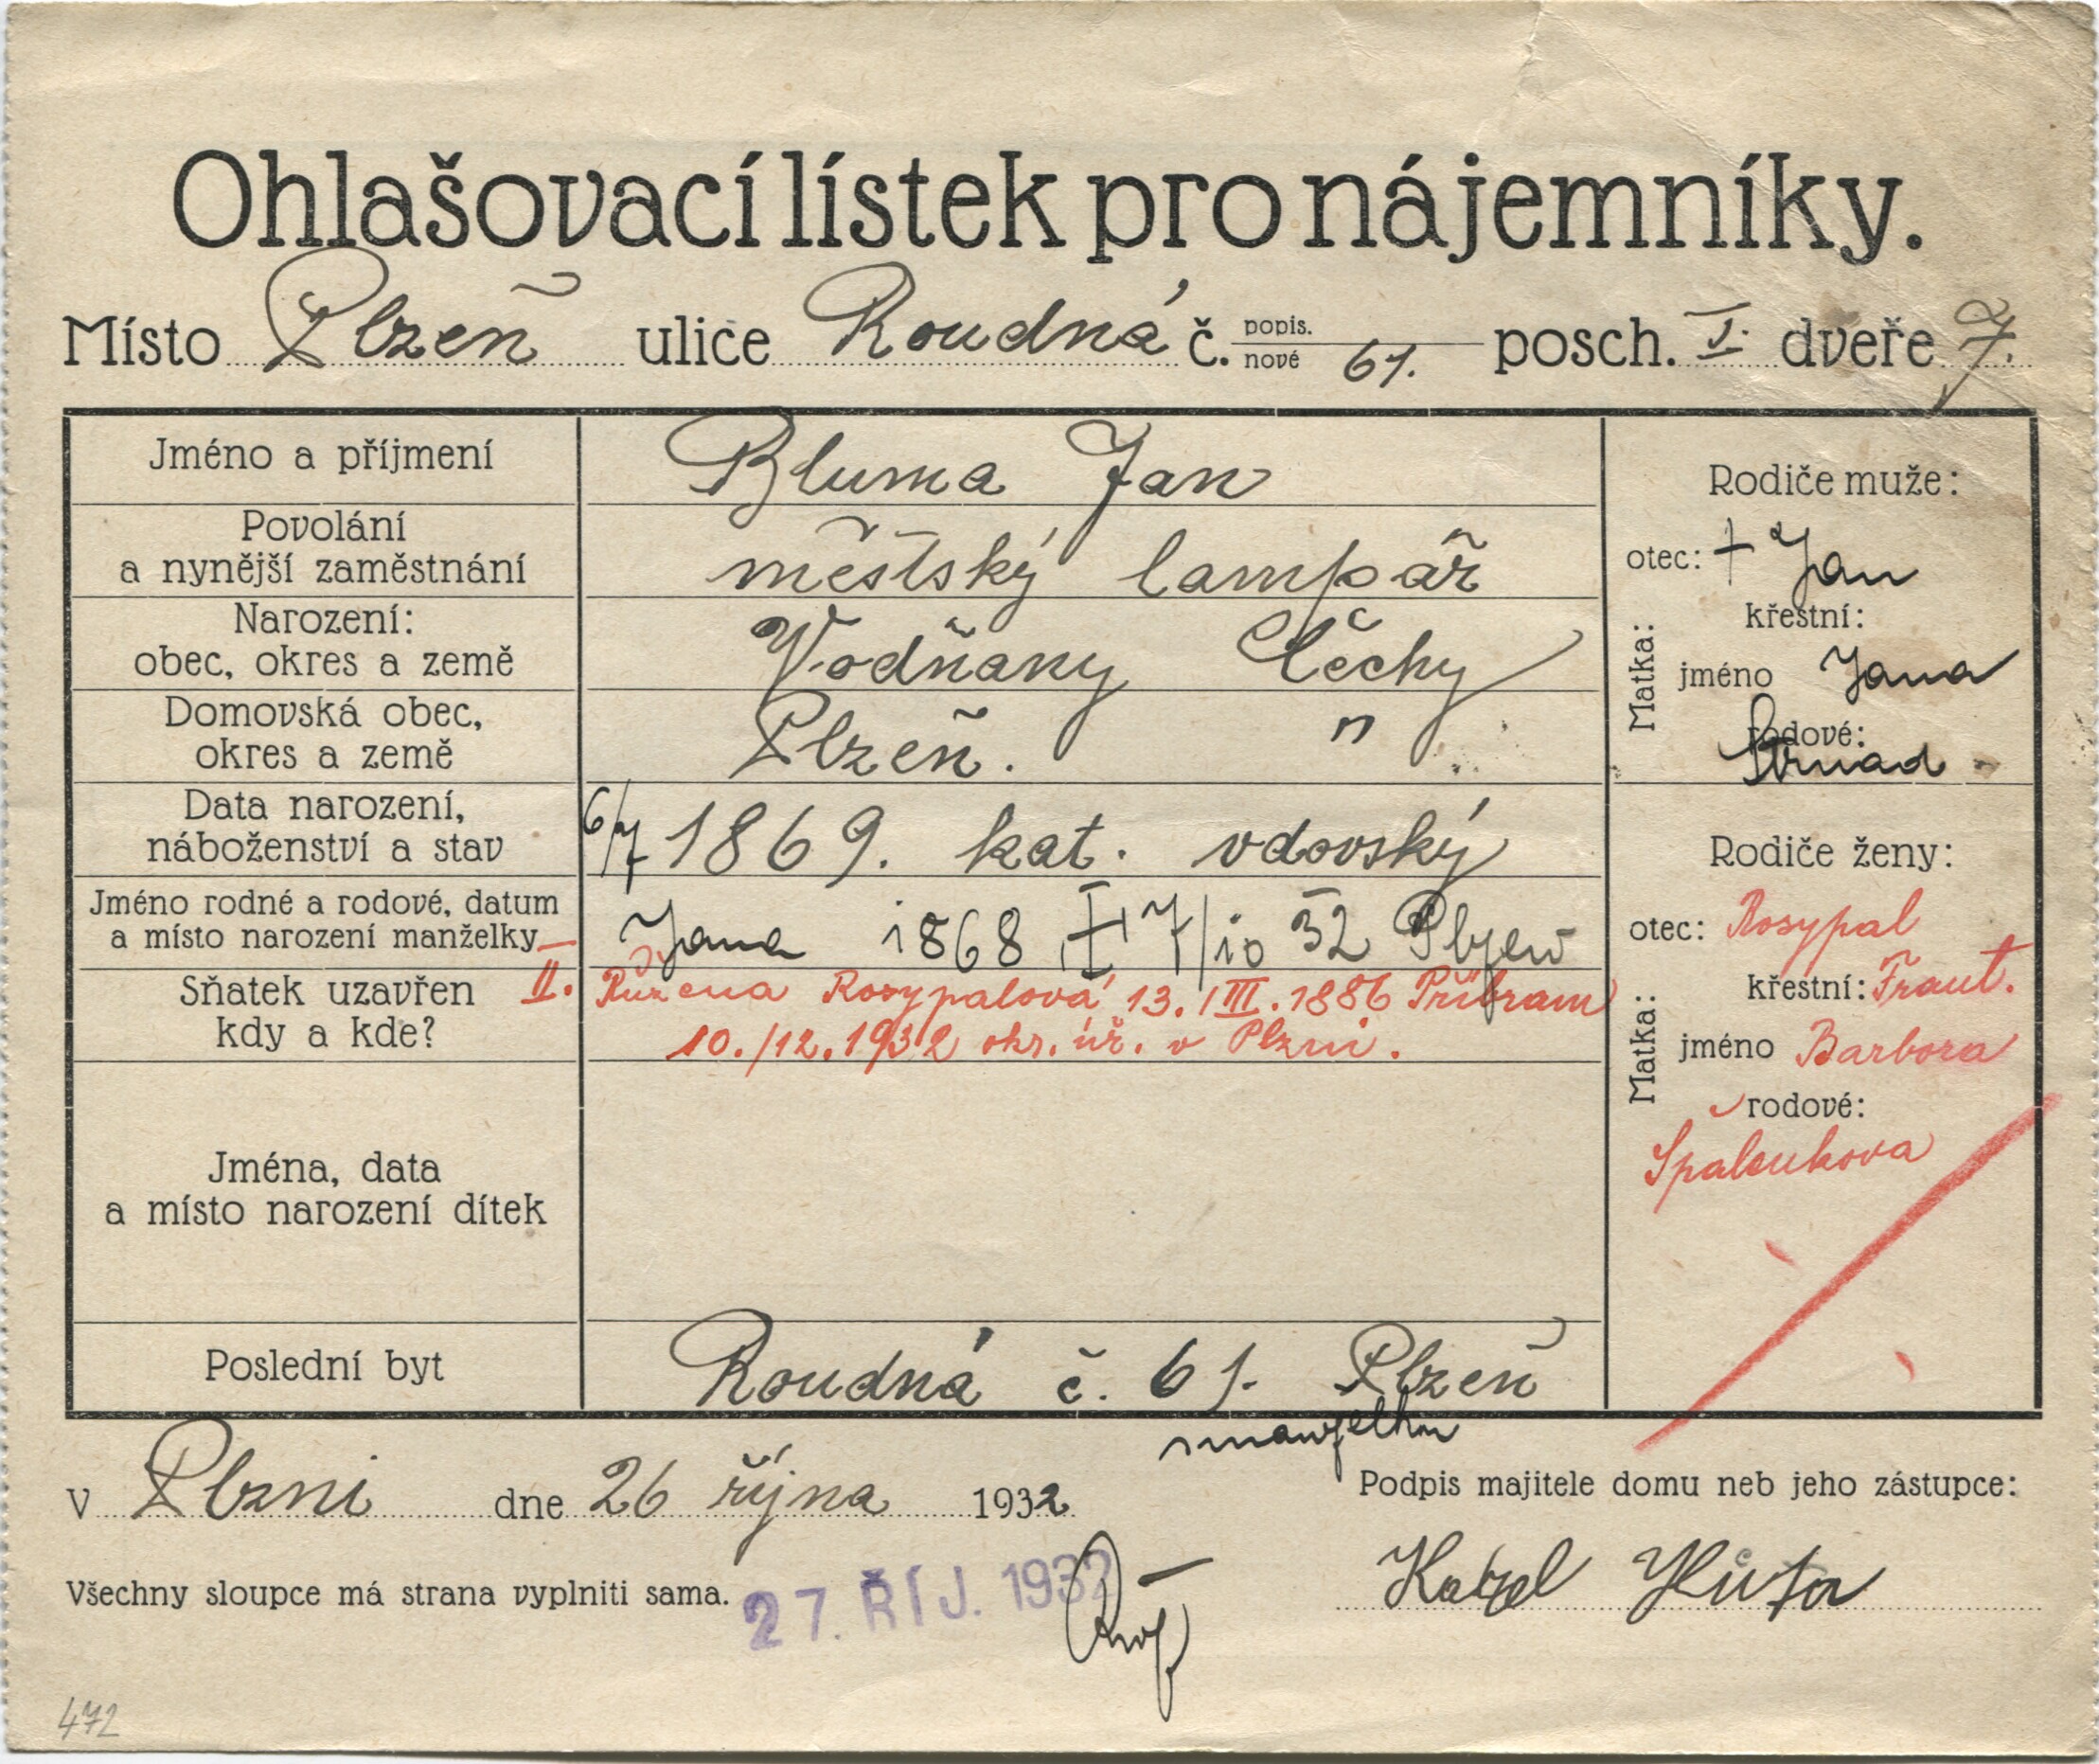 Ohlašovací lístek pro nájemníky.
Místo Plzeň ulice Roudná č. popis. nové 61. posch. I. dveře 7.
Jméno a příjmení
Bluma Jan
Povolání
a nynější zaměstnání
městský lampář
Narození:
obec, okres a země
Vodňany Čechy
Domovská obec,
okres a země
Plzeň. "
Data narození,
náboženství a stav
6/7 1869. kat. vdovský
Jméno rodné a rodové, datum
a místo narození manželky
Jana 1868 7/10 32 Plzeň
Sňatek uzavřen
kdy a kde?
II. Růžena Rosypalová 13./III.1886 Příbram
10./12.1932 okr. úř. v Plzni.
Jména, data
a místo narození dítek
Poslední byt
Roudná č. 61. Plzeň
Rodiče muže:
otec: † Jan
Matka:
křestní:
jméno Jana
rodové:
Strnad
Rodiče ženy:
otec: Rosypal
křestní: Frant.
Matka:
jméno Barbora
rodové:
V Plzni dne 26 října 1932
s manželkou
Podpis majitele domu neb jeho zástupce:
Všechny sloupce má strana vyplniti sama.
27. ŘÍJ. 1932
Karel Hůta
472